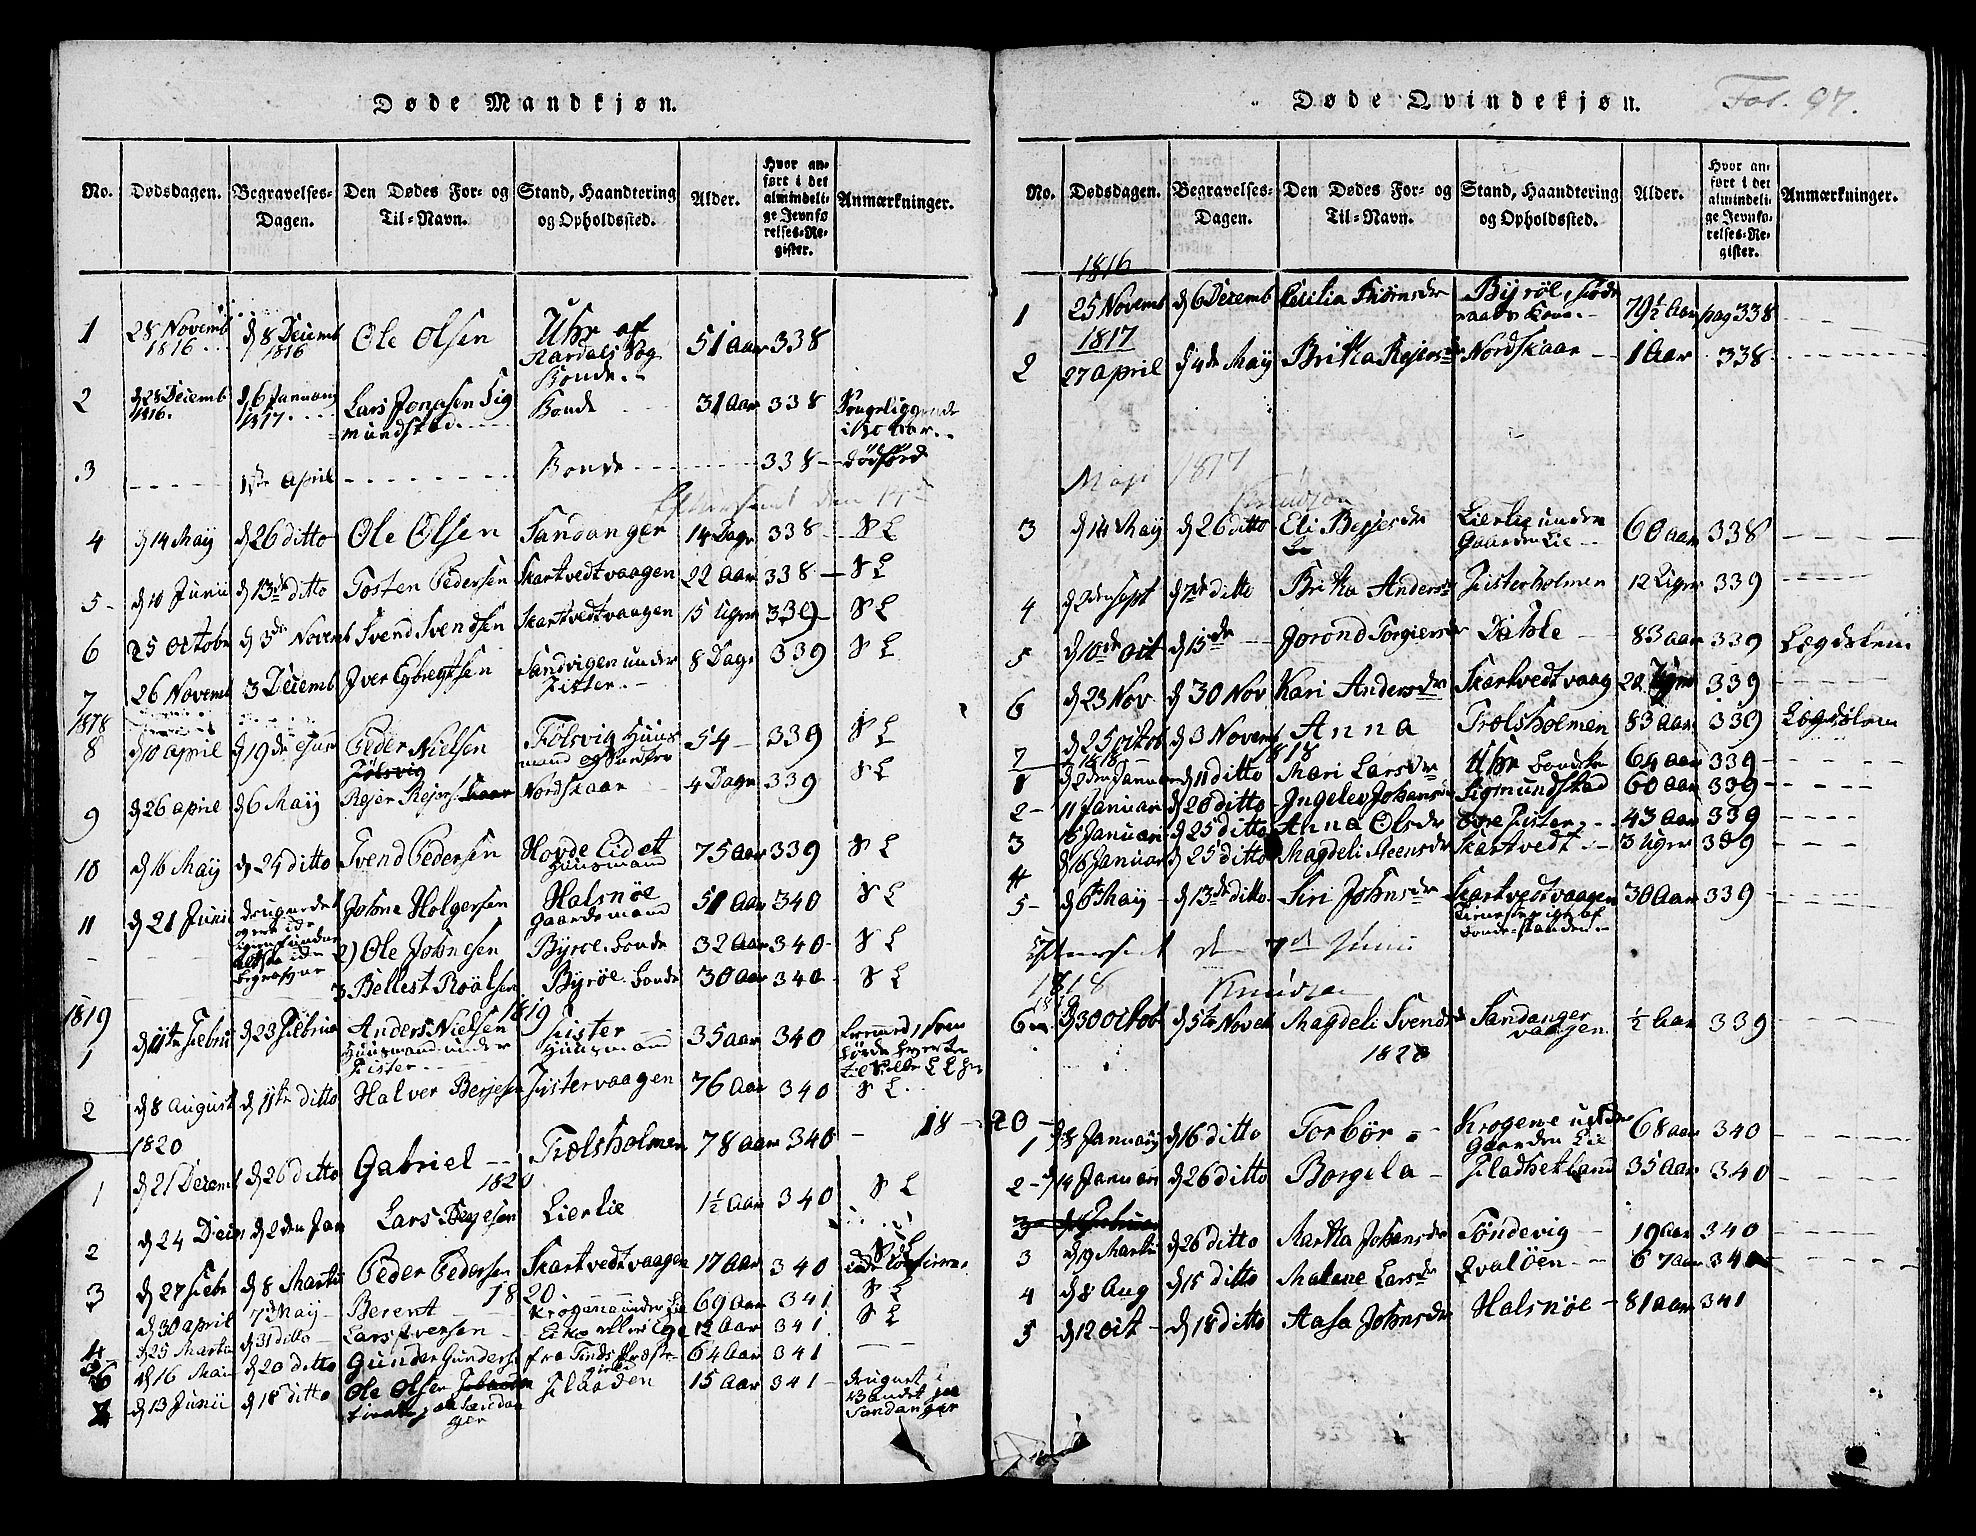 Døde Mandkjøn.
No. Dødsdagen. Begravelses-Dagen. Den Dødes For- og Til-Navn. Stand, Haandtering og Opholdssted. Alder. Hvor anført i det almindelige Jevnførelses-Register. Anmærkninger.
1 28 Novemb 1816 d 8 Decemb 1816 Ole Olsen Uhr af Aardals Sog Bonde 51 Aar 338
2 d 28 Decemb 1816. d 6 Januarij 1817. Lars Jonasen Sigmundstad Bonde 31 Aar 338
3 1ste April Bonde 338 dødførd
4 d 14 Maij d 26 ditto Ole Olsen Sandanger 14 Dage 338 S L
5 d 10 Junii d 13de ditto Tosten Pedersen Skartvedtvaagen 22 Aar 338 S L
6 25 Octobr d 3de Novemb Svend Svendsen Skartvedtvaagen 15 Uger 339 S L
7 26 Novemb 3 Decemb Iver Egbregtsen Sandvigen under Fister 8 Dage 339 S L
1878
8 d 10 April d 19de Peder Nielsen Følsvig Huusmand 54 339 S L
9 d 26 April d 6 Maij Rejer Rejers Nordskaar 4 Dage 339 S L
10 d 16 Maij d 24 ditto Svend Pedersen Hovde Eidet Huusmand 75 Aar 339 S L
11 d 21 Junii Johne Holgersen Halsnøe Gaardemand 51 Aar 340 S L
2) Ole Johnesen Byrøe bonde 32 Aar 340 S L
3 Bellest Roalsen Byrøe bonde 30 Aar 340 S L
1819 1819
1 d 11te Febru d 23 Februa Anders Nielsen Huusmand under Fister Fister Huusmand 35 Aar 340
2 d 8 August d 11te ditto Halver Berjesen Fistervaagen 76 Aar 340 S L
1820 18
1 d 21 Decemb d 26 ditto Gabriel Trolsholmen 78 Aar 340
1820
2 d 24 Decm d 2den Jan Lars Lierlie 1½ Aar 340 S L
3 d 27 Febr d 8 Martii Peder Pedersen Skartvedtvaagen 17 Aar 340 S L
1820
d 30 April 7d Maij Berent Krogene under Lie 69 Aar 341 S L
d 25 Martii d 31 ditto Lars Iversen 12 Aar 341 S L
d 16 Mai d 20 ditto Gunder Gunders fra Tinds Præste 64 Aar 341
d 13 Junii d 18 ditto Ole Olsen 15 Aar 341 drugnet i Vandet paa Sandanger
Døde Qvindekjøn. Fol. 97.
No. Dødsdagen. Begravelses-Dagen. Den Dødes For- og Til-Navn. Stand, Haandtering og Opholdssted. Alder. Hvor anført i det almindelige Jevnførelses-Register. Anmærkninger.
1816
1 25 Novemb d 6 Decemb Cecilia Byrøe 79½ Aar pag 338
1817
2 27 April d 4de Maij Britta Rejersdr Nordskaar 1 Aar 338
Maji 1817
Knudsen
3 d 14 Maij d 26 ditto Eli Berjesdr Lierlie under Gaarden Lie 60 Aar 338
4 d 2den Sept d 7de ditto Britta Andersdr Fisterholmen 12 Uger 339
5 d 10de Oct d 15de Jorond Torgiersdr Dahle 83 Aar 339 Lægdslem
6 d 23 Nov d 30 Nov Kari Andersdr Skartvedtvaag 20 Uger 339
7 d 25 octob d 3 Novemb Anna Trolsholmen 83 Aar 339 Lægdslem
1818 1818
1 d 2den Januar d 11 ditto Mari Larsdr Uhr 64 Aar 339
2 11 Januar d 20 ditto Ingelev Johansdr Sigmundstad 60 Aar 339
3 15 Januar d 25 ditto Anna Olsdr Øvre Fister 43 Aar 339
4 d 16 Januar d 25 ditto Magdeli Steensdr Skartvedt 3 Uger 339
5 d 6te Maij d 13de ditto Siri Johnsdr Skartvedtvaagen 30 Aar 339
Efterseet d 7de Junii
1818 Knudsen
6 d 30 octob d 5te Novemb Magdeli Svendsdr Sandangervaagen ½ Aar 339
1820
20
1 d 8 Januarij d 16 ditto Torbør Krogene under Gaarden Lie 68 Aar 340
2 d 14 Januari d 26 ditto Borgela Fladhetland 35 Aar 340
3 d 19 Martii d 26 ditto Martha Johansdr Tøndevig 19 Aar 340
4 d 8 Aug d 15 ditto Malene Larsdr Qvaløen 67 Aar 340
5 d 12 Oct d 18 ditto Aasa Johnsdr Halsnøe 81 Aar 341